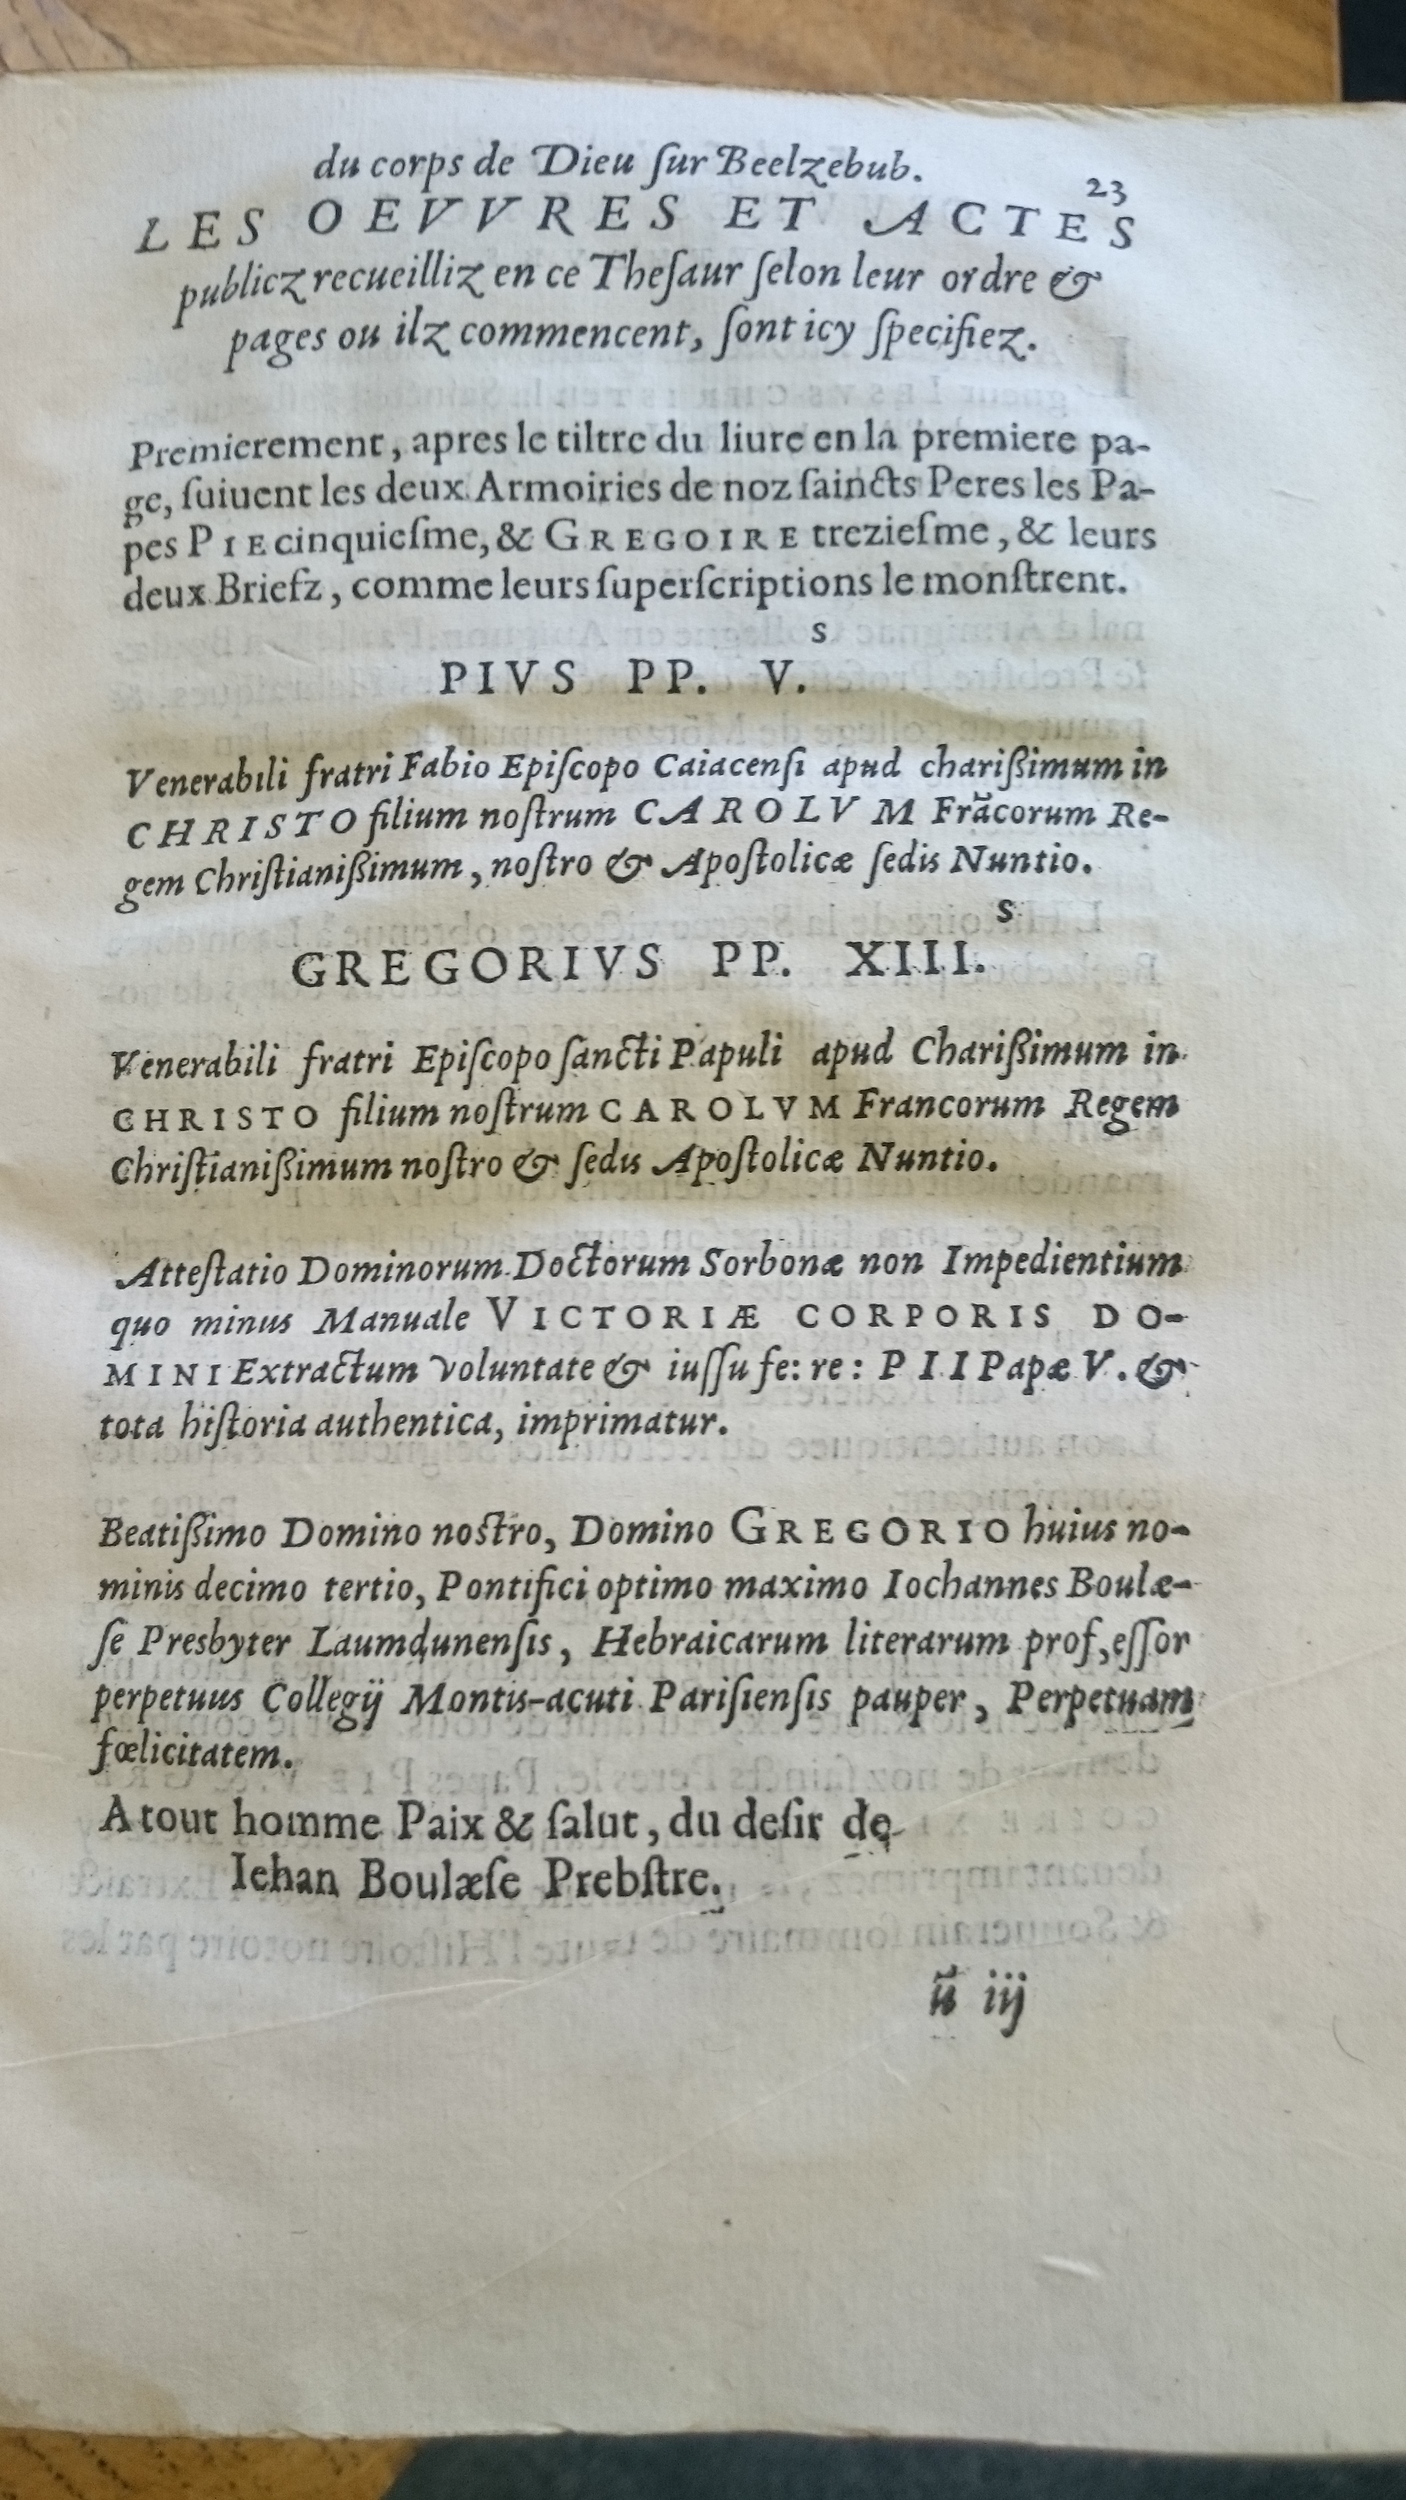 du corps de Dieu ſur Beelzebub.
23
LES OEVVRES ET ACTES
publicz recueilliz en ce Theſaur ſelon leur ordre &
pages ou ilz commencent, ſont icy ſpecifiez.
Premierement, apres le tiltre du liure en la premiere pa-
ge, ſuiuent les deux Armoiries de noz ſaincts Peres les Pa-
pes PIE cinquieſme, & GREGOIRE trezieſme, & leurs
deux Briefz, comme leurs ſuperſcriptions le monſtrent.
s
PIVS PP. V.
Venerabili fratri Fabio Epiſcopo Caiacenſi apud charißimum in
CHRISTO filium noſtrum CAROLVM Frācorum Re-
gem Chriſtianißimum, noſtro & Apoſtolicæ ſedis Nuntio.
s
GREGORIVS PP. XIII.
Venerabili fratri Epiſcopo ſancti Papuli apud Charißimum in
CHRISTO filium noſtrum CAROLVM Francorum Regem
Chriſtianißimum noſtro & ſedis Apoſtolicæ Nuntio.
Atteſtatio Dominorum Doctorum Sorbonæ non Impedientium
quo minus Manuale VICTORIÆ CORPORIS DO-
MINI Extractum voluntate & iuſſu fe: re: PII Papæ V. &
tota hiſtoria authentica, imprimatur.
Beatißimo Domino noſtro, Domino GREGORIO huius no-
minis decimo tertio, Pontifici optimo maximo Iochannes Boulæ-
ſe Presbyter Laumdunenſis, Hebraicarum literarum prof,eſſor
perpetuus Collegij Montis-acuti Pariſienſis pauper, Perpetuam
fœlicitatem.
A tout homme Paix & ſalut, du deſir de
Iehan Boulæſe Prebſtre.
ũ iij